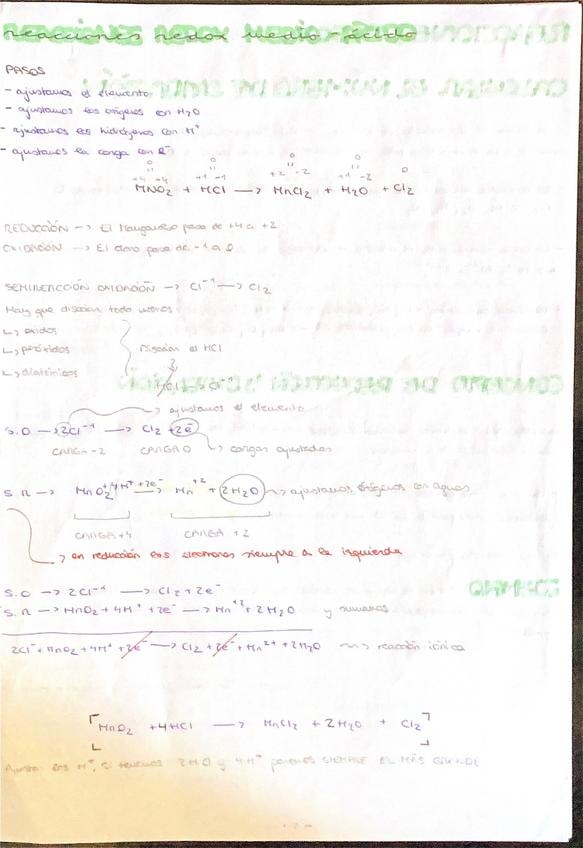 reacciones redox medio-ácido
PASOS
- ajustamos el elemento
- ajustamos los oxígenos con H2O
- ajustamos los hidrógenos con H+
- ajustamos la carga con e-
0 0 0 0 0
+4 -4 +1 -1 +2 -2 +1 -2
MNO2 + HCl → MnCl2 + H2O + Cl2
REDUCCIÓN → El Manganeso pasa de +4 a +2
OXIDACIÓN → El cloro pasa de -1 a 0
SEMIRREACCIÓN OXIDACIÓN → Cl-1 → Cl2
Hay que disociar todo menos:
↳ óxidos
↳ peróxidos Disocian el HCl
↳ diatómicos
HCl → Cl-1
→ ajustamos el elemento
S.O → 2Cl-1 → Cl2 + 2e- → cargas ajustadas
CARGA -2 CARGA 0
S.R → MnO2 + 4H+ + 2e- → Mn+2 + 2H2O → ajustamos oxígenos con aguas
CARGA +4 CARGA +2
→ en reducción los electrones siempre a la izquierda
S.O → 2Cl-1 → Cl2 + 2e-
S.R → MnO2 + 4H+ + 2e- → Mn+2 + 2H2O y sumamos
2Cl- + MnO2 + 4H+ + 2e- → Cl2 + 2e- + Mn2+ + 2H2O → reacción iónica
MnO2 + 4HCl → MnCl2 + 2H2O + Cl2
Ajustar los H+, si tenemos 2HCl y 4H+ ponemos SIEMPRE EL MÁS GRANDE